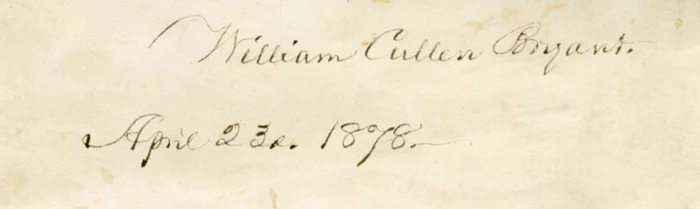 William Cullen Bryant.
April 23d. 1878.